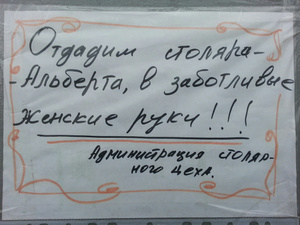 Отдадим столяра-
-Альберта, в заботливые
женские руки!!!
Администрация столяр-
ного цеха.